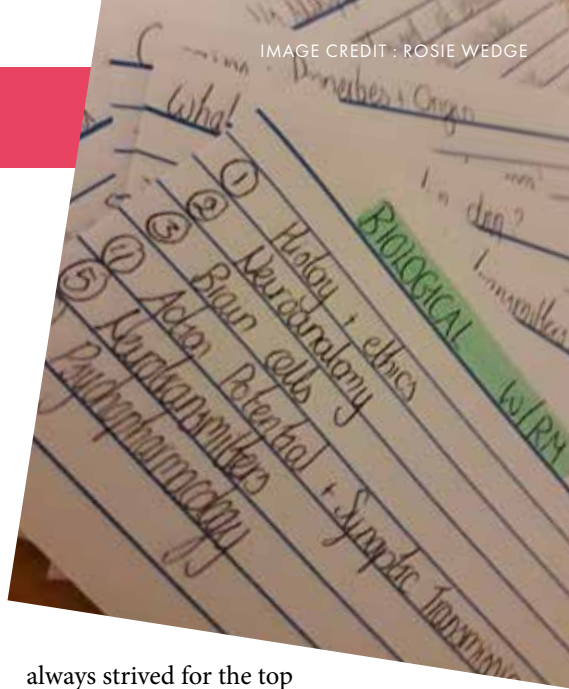 IMAGE CREDIT : ROSIE WEDGE
+ Origin
What
drug?
BIOLOGICAL W/RM
① History + ethics
② Neuroanatomy
③ Brain cells
④ Action Potential + Synaptic
⑤ Neurotransmitters
Psychopharmocology
always strived for the top